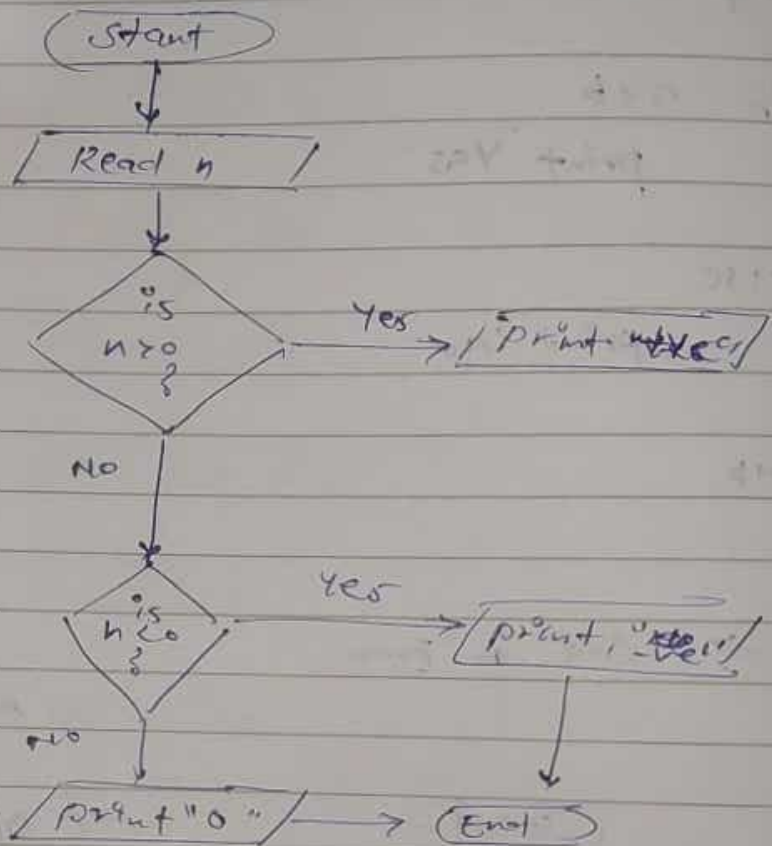 Start
Read n
is
n>0
?
Yes
Print "+ve"
No
is
n<0
?
Yes
print, "-ve"
No
print "0"
End